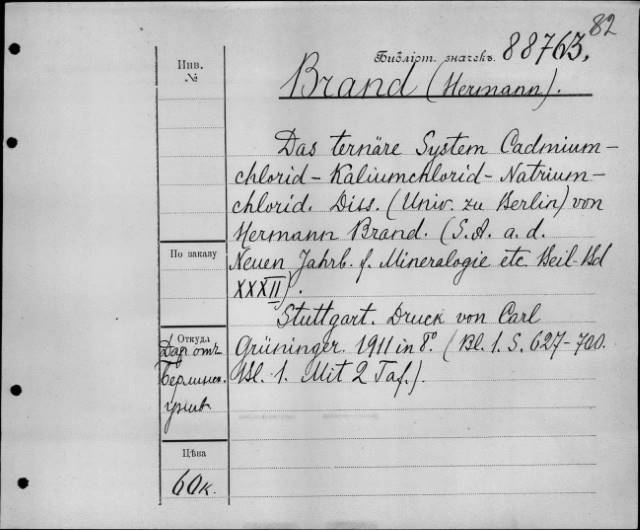 82
Библіот. значекъ. 88763.
Инв.
№
Brand (Hermann).
Das ternäre System Cadmium-
chlorid-Kaliumchlorid-Natrium-
chlorid. Diss. (Univ. zu Berlin) von
Hermann Brand. (S.A. a.d.
По заказу
Neuen Jahrb. f. Mineralogie etc. Beil-Bd
XXXII).
Stuttgart. Druck von Carl
Откуда
Даръ отъ
Grüninger. 1911 in 8°. (Bl. 1. S. 627-700.
Берлинск.
Bl. 1. Mit 2 Taf.).
унив
Цѣва
60 к.